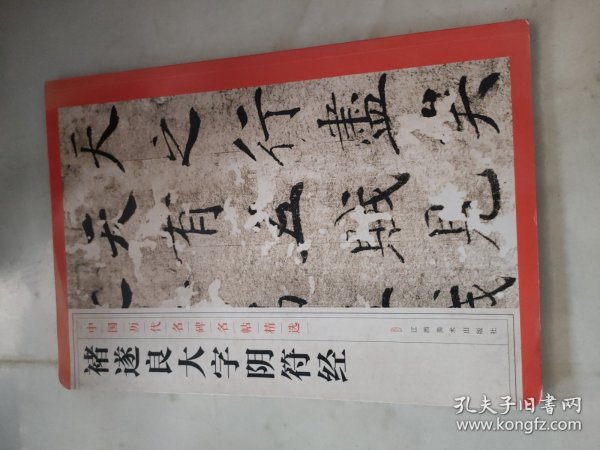 天之行盡矣
天有五賊見
中国历代名碑名帖精选
江西美术出版社
褚遂良大字阴符经
孔夫子旧书网
www.kongfz.com